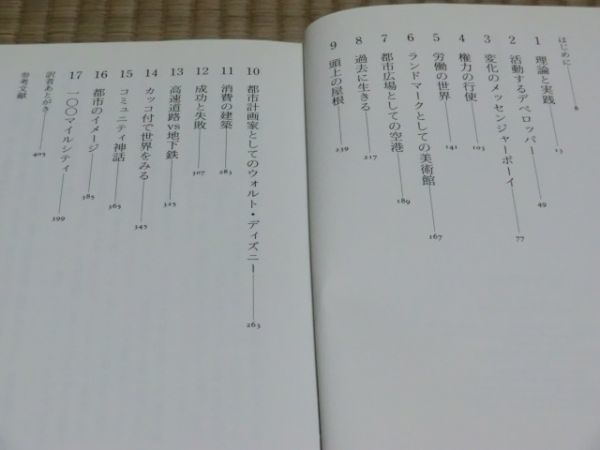 はじめに 8
1 理論と実践 13
2 活動するデベロッパー 49
3 変化のメッセンジャーボーイ 77
4 権力の行使 103
5 労働の世界 141
6 ランドマークとしての美術館 167
7 都市広場としての空港 189
8 過去に生きる 217
9 頭上の屋根 239
10 都市計画家としてのウォルト・ディズニー 263
11 消費の建築 283
12 成功と失敗 307
13 高速道路vs地下鉄 325
14 カッコ付で世界をみる 345
15 コミュニティ神話 365
16 都市のイメージ 385
17 一〇〇マイルシティ 399
訳者あとがき 405
参考文献